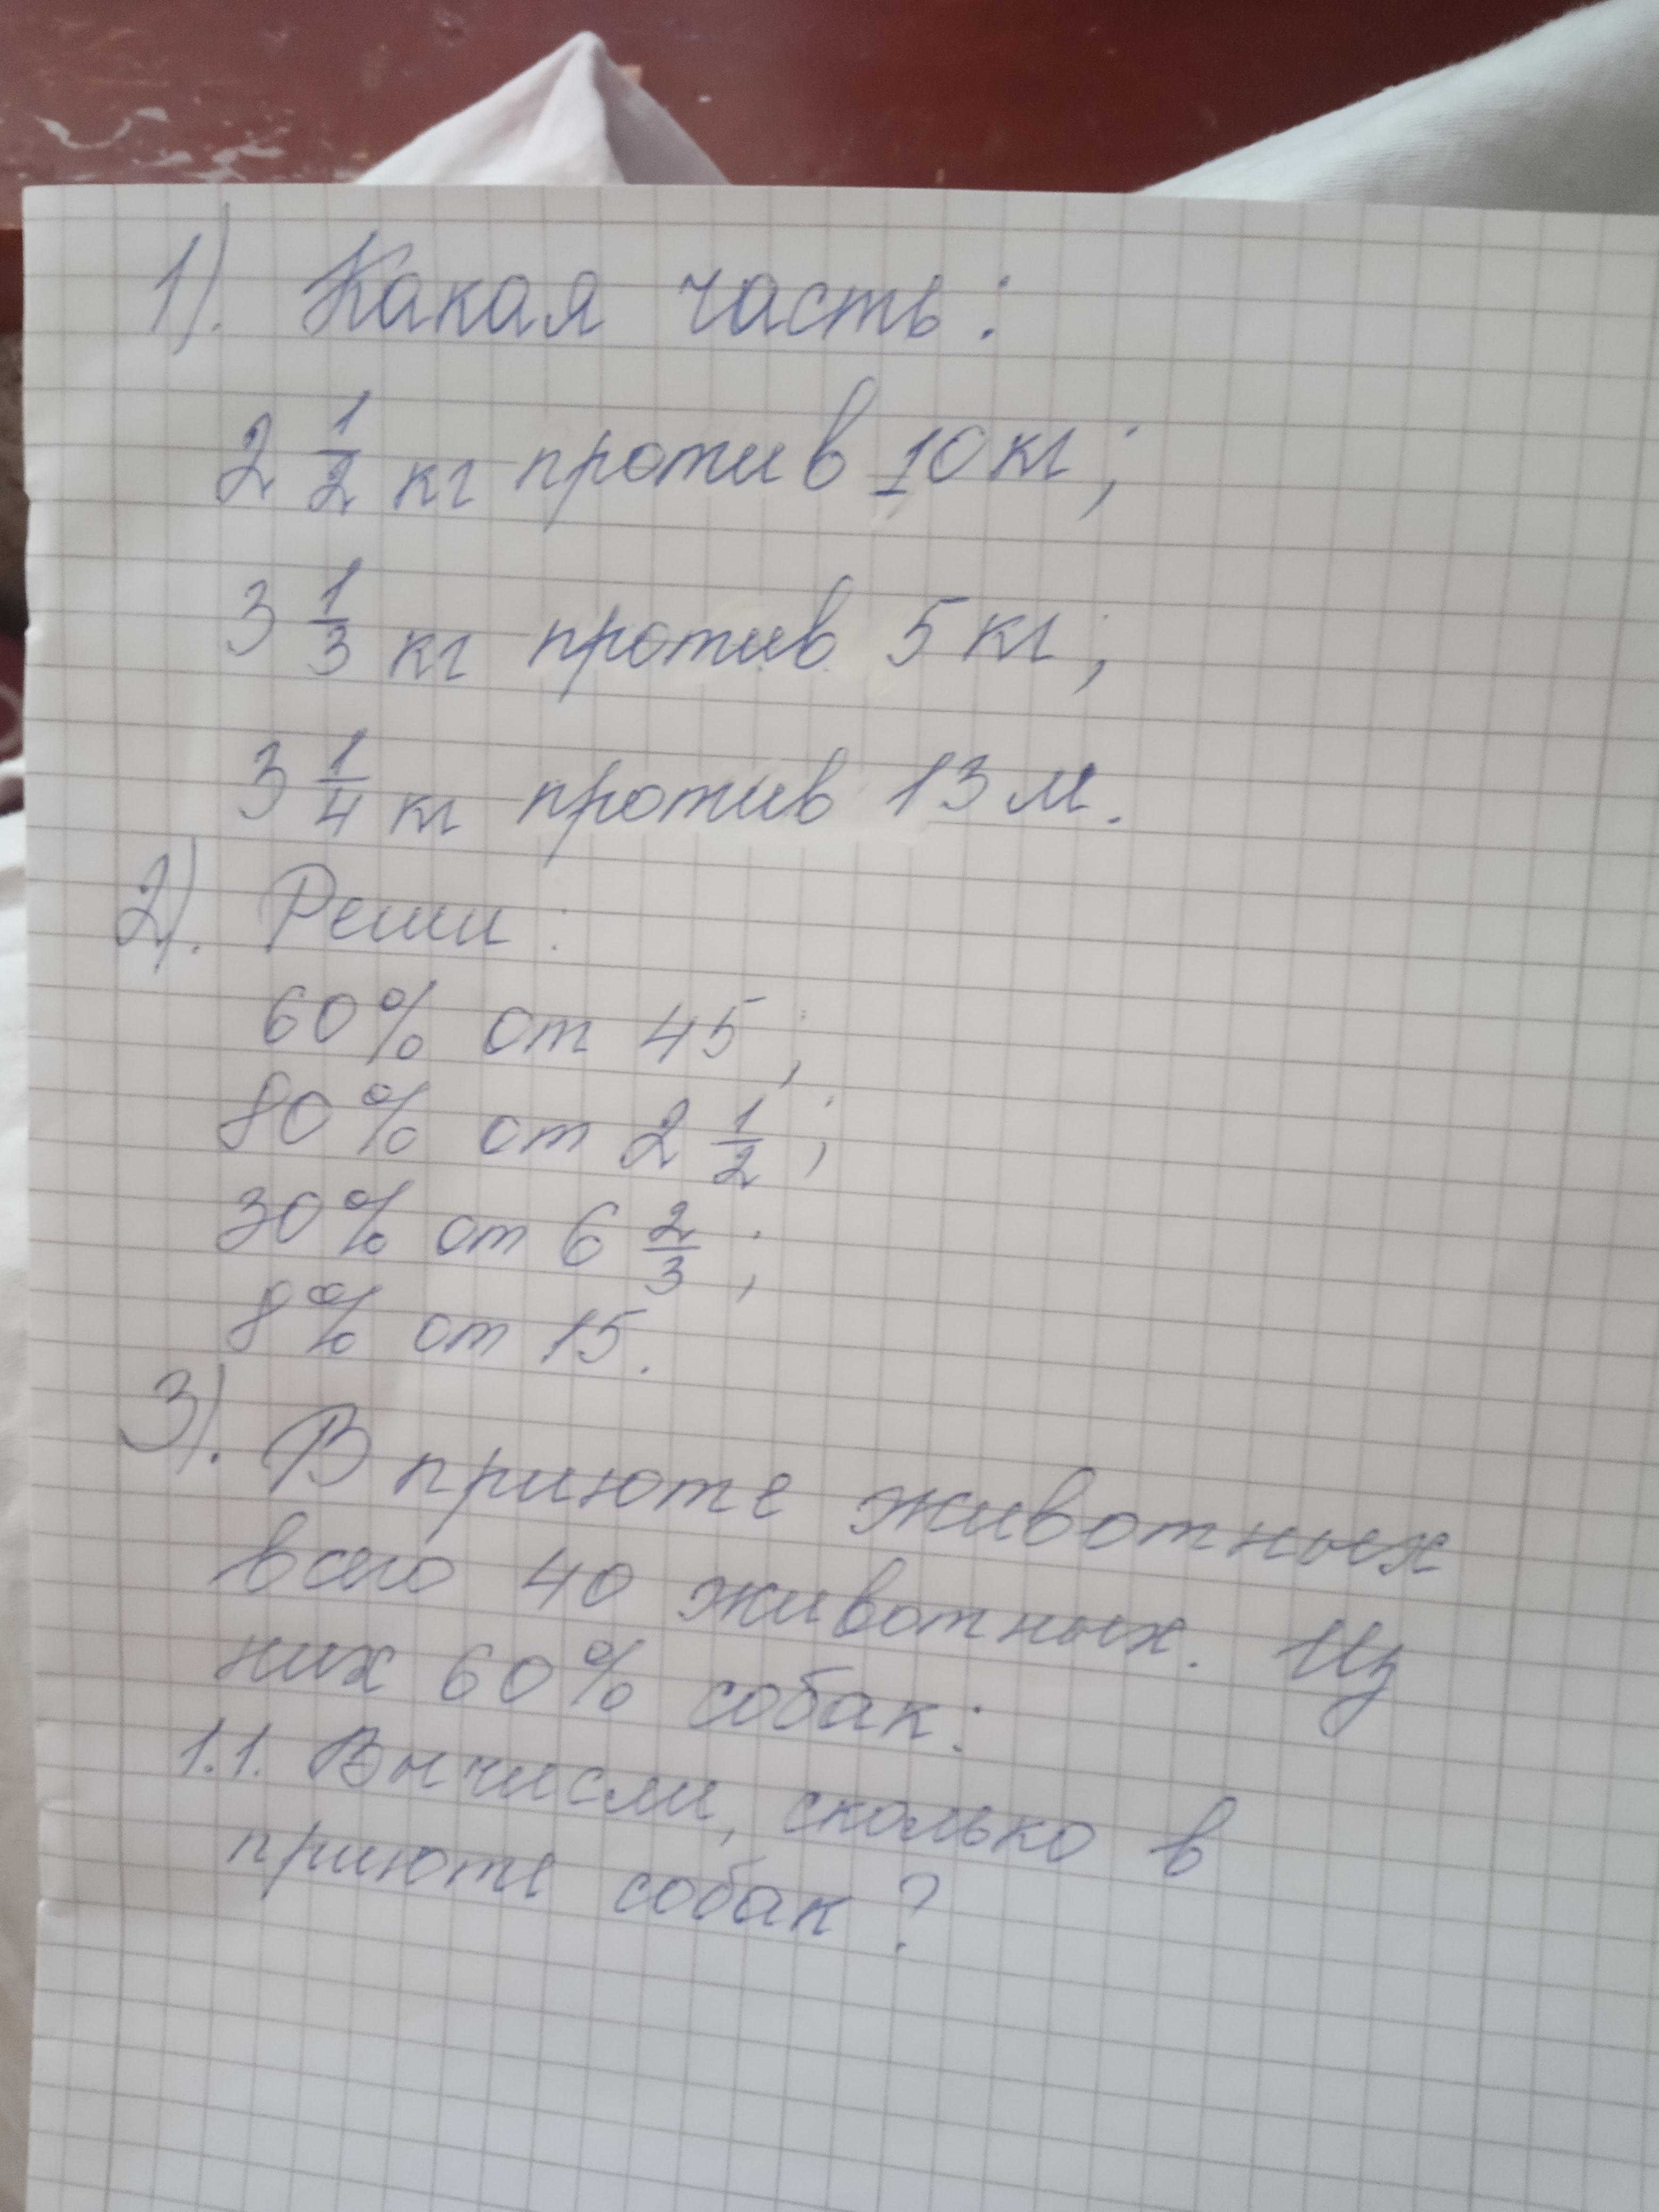 1). Какая часть:
2 1/2 кг против 10 кг;
3 1/3 кг против 5 кг;
3 1/4 кг против 13 м.
2). Реши:
60% от 45;
80% от 2 1/2;
30% от 6 2/3;
8% от 15.
3). В приюте животных
всего 40 животных. Из
них 60% собак:
1.1. Вычисли, сколько в
приюте собак?